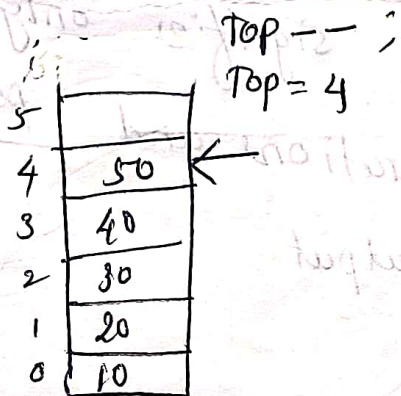 TOP -- ;
TOP = 4
5
4 50
3 40
2 30
1 20
0 10